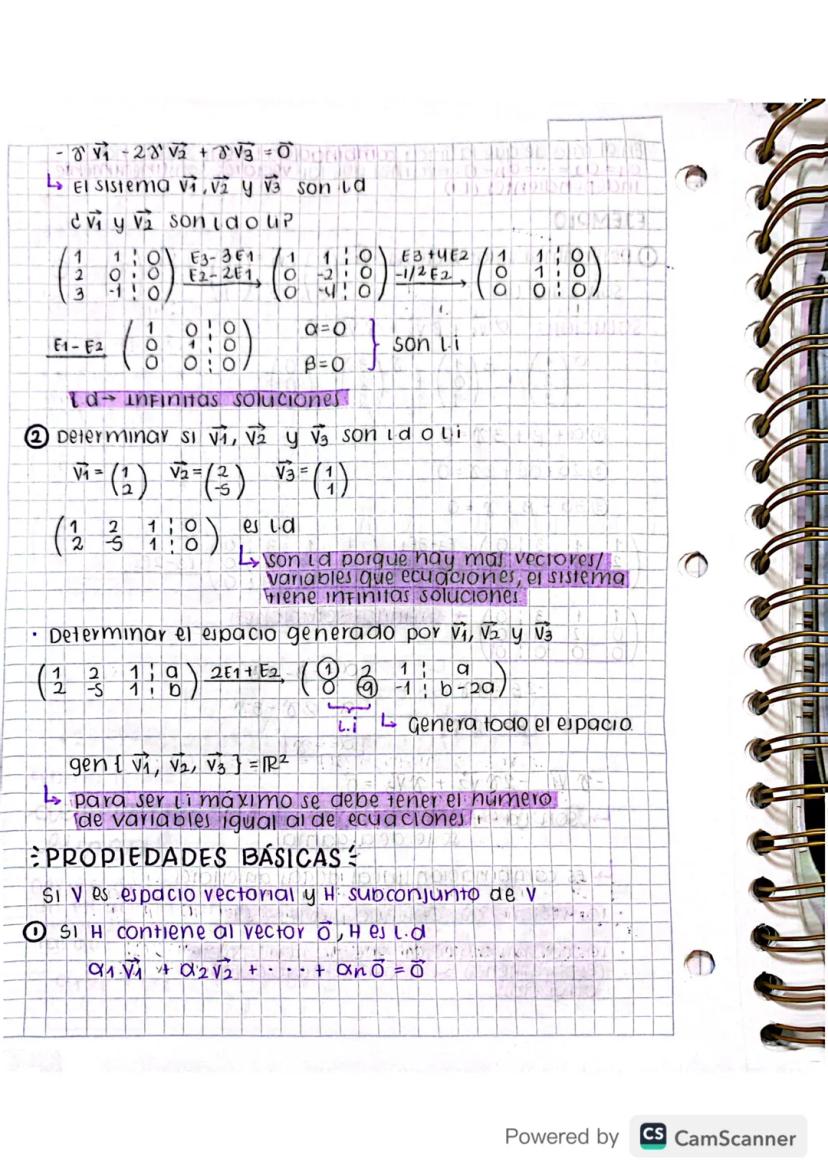 - γ v⃗1 - 2γ v⃗2 + γ v⃗3 = 0⃗
↳ El sistema v⃗1, v⃗2 y v⃗3 son l.d
¿ v⃗1 y v⃗2 son l.d o l.i?
(1 1 ¦ 0) E3-3E1 (1 1 ¦ 0) E3+4E2 (1 1 ¦ 0)
(2 0 ¦ 0) E2-2E1 → (0 -2 ¦ 0) -1/2E2 → (0 1 ¦ 0)
(3 -1 ¦ 0) (0 -4 ¦ 0) (0 0 ¦ 0)
(1 0 ¦ 0) α=0
E1-E2 (0 1 ¦ 0) } son l.i
(0 0 ¦ 0) β=0
l.d → infinitas soluciones
② Determinar si v⃗1, v⃗2 y v⃗3 son l.d o l.i
v⃗1 = (1 2) v⃗2 = (2 -5) v⃗3 = (1 1)
(1 2 1 ¦ 0) es l.d
(2 -5 1 ¦ 0)
↳ son l.d porque hay más vectores/
variables que ecuaciones, el sistema
tiene infinitas soluciones
· Determinar el espacio generado por v⃗1, v⃗2 y v⃗3
(1 2 1 ¦ a) 2E1+E2 → (1 2 1 ¦ a)
(2 -5 1 ¦ b) (0 -9 -1 ¦ b-2a)
l.i ↳ Genera todo el espacio
gen { v⃗1, v⃗2, v⃗3 } = ℝ²
↳ para ser l.i máximo se debe tener el número
de variables igual al de ecuaciones
PROPIEDADES BÁSICAS
Si V es espacio vectorial y H subconjunto de V
① Si H contiene al vector 0⃗, H es l.d
α1 v⃗1 + α2 v⃗2 + · · · + αn 0⃗ = 0⃗
Powered by CS CamScanner